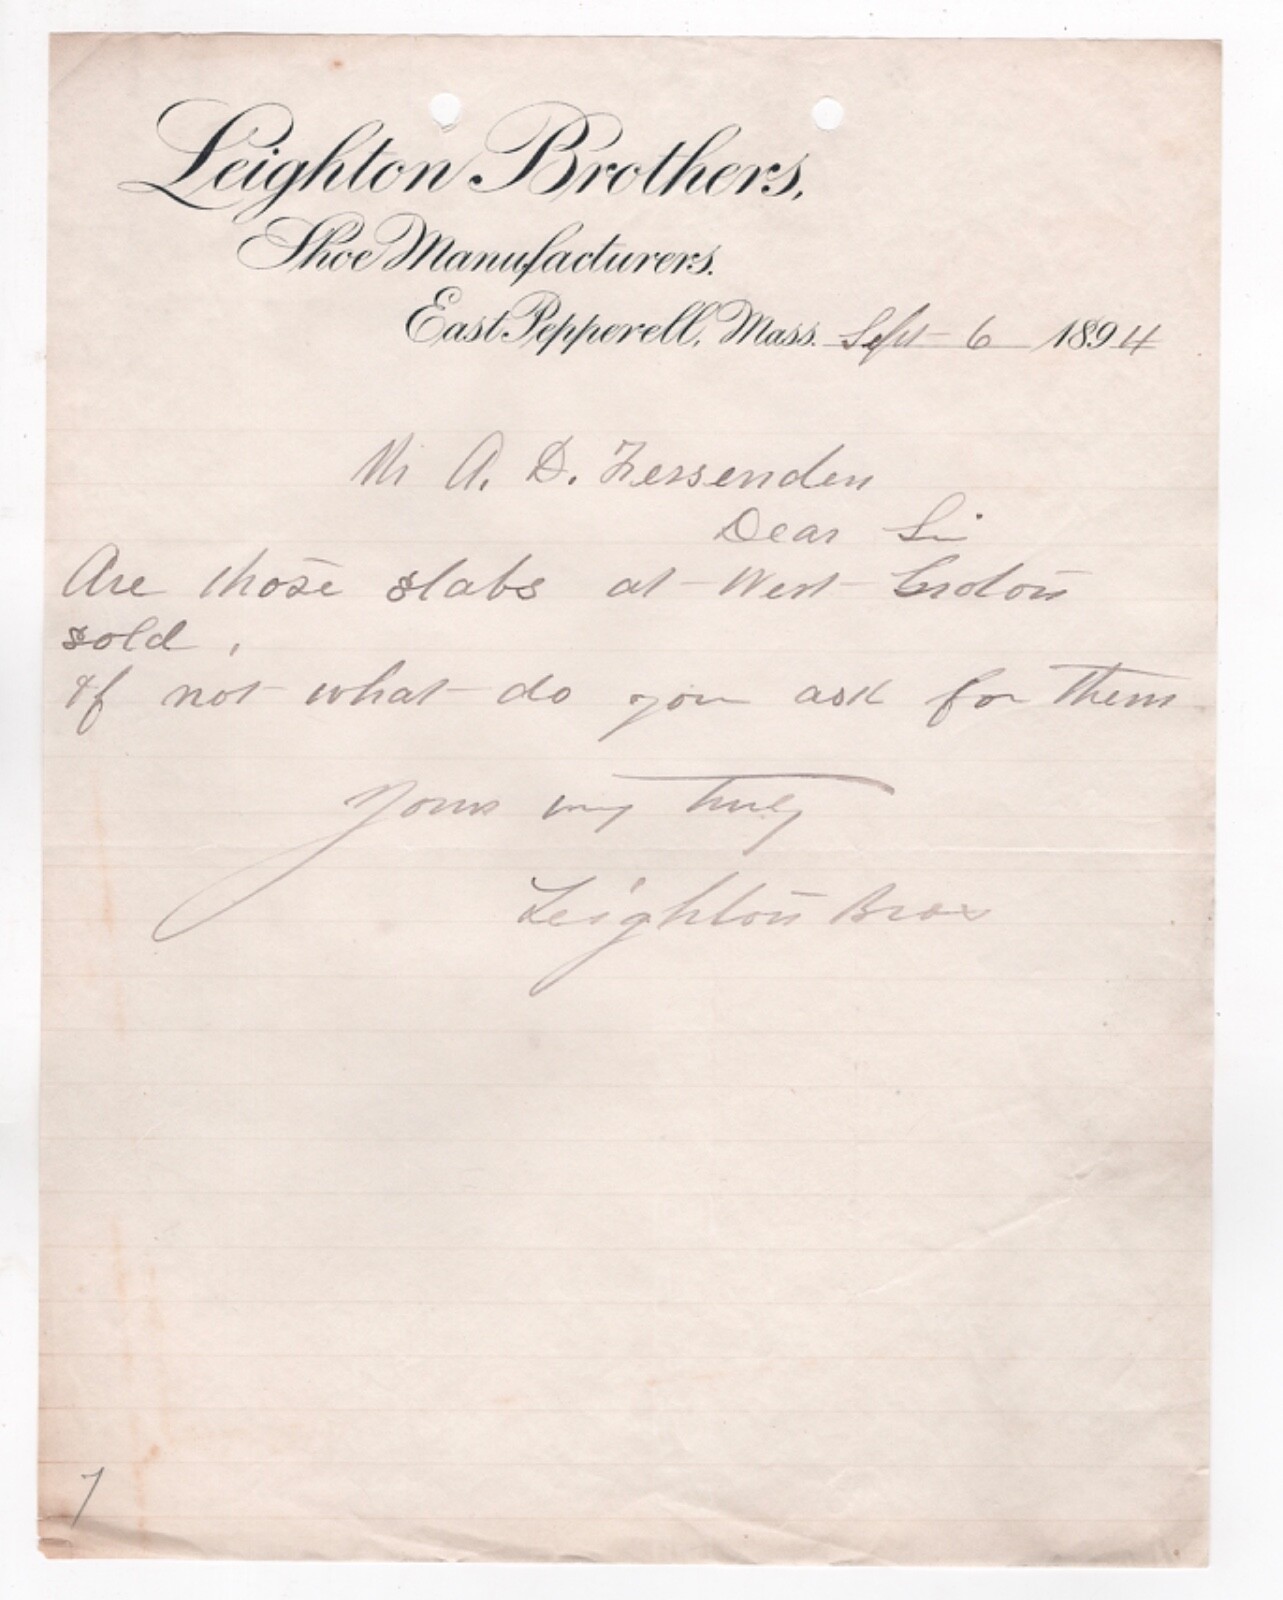 Leighton Brothers,
Shoe Manufacturers.
East Pepperell, Mass. Sept 6 1894
Mr A. D. Fessenden
Dear Sir
Are those slabs at West Groton
sold,
If not what do you ask for them
Yours very Truly
Leighton Bros
7